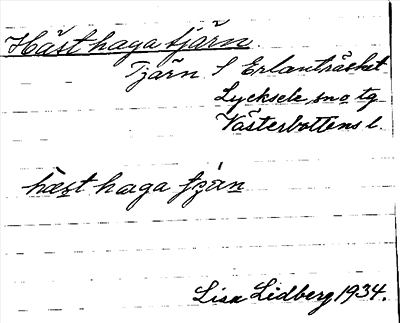 Hästhaga tjärn
Tjärn S Erlanträsket
Lycksele sno tg
Västerbottens l.
hæst haga tjän
Lisa Lidberg 1934.